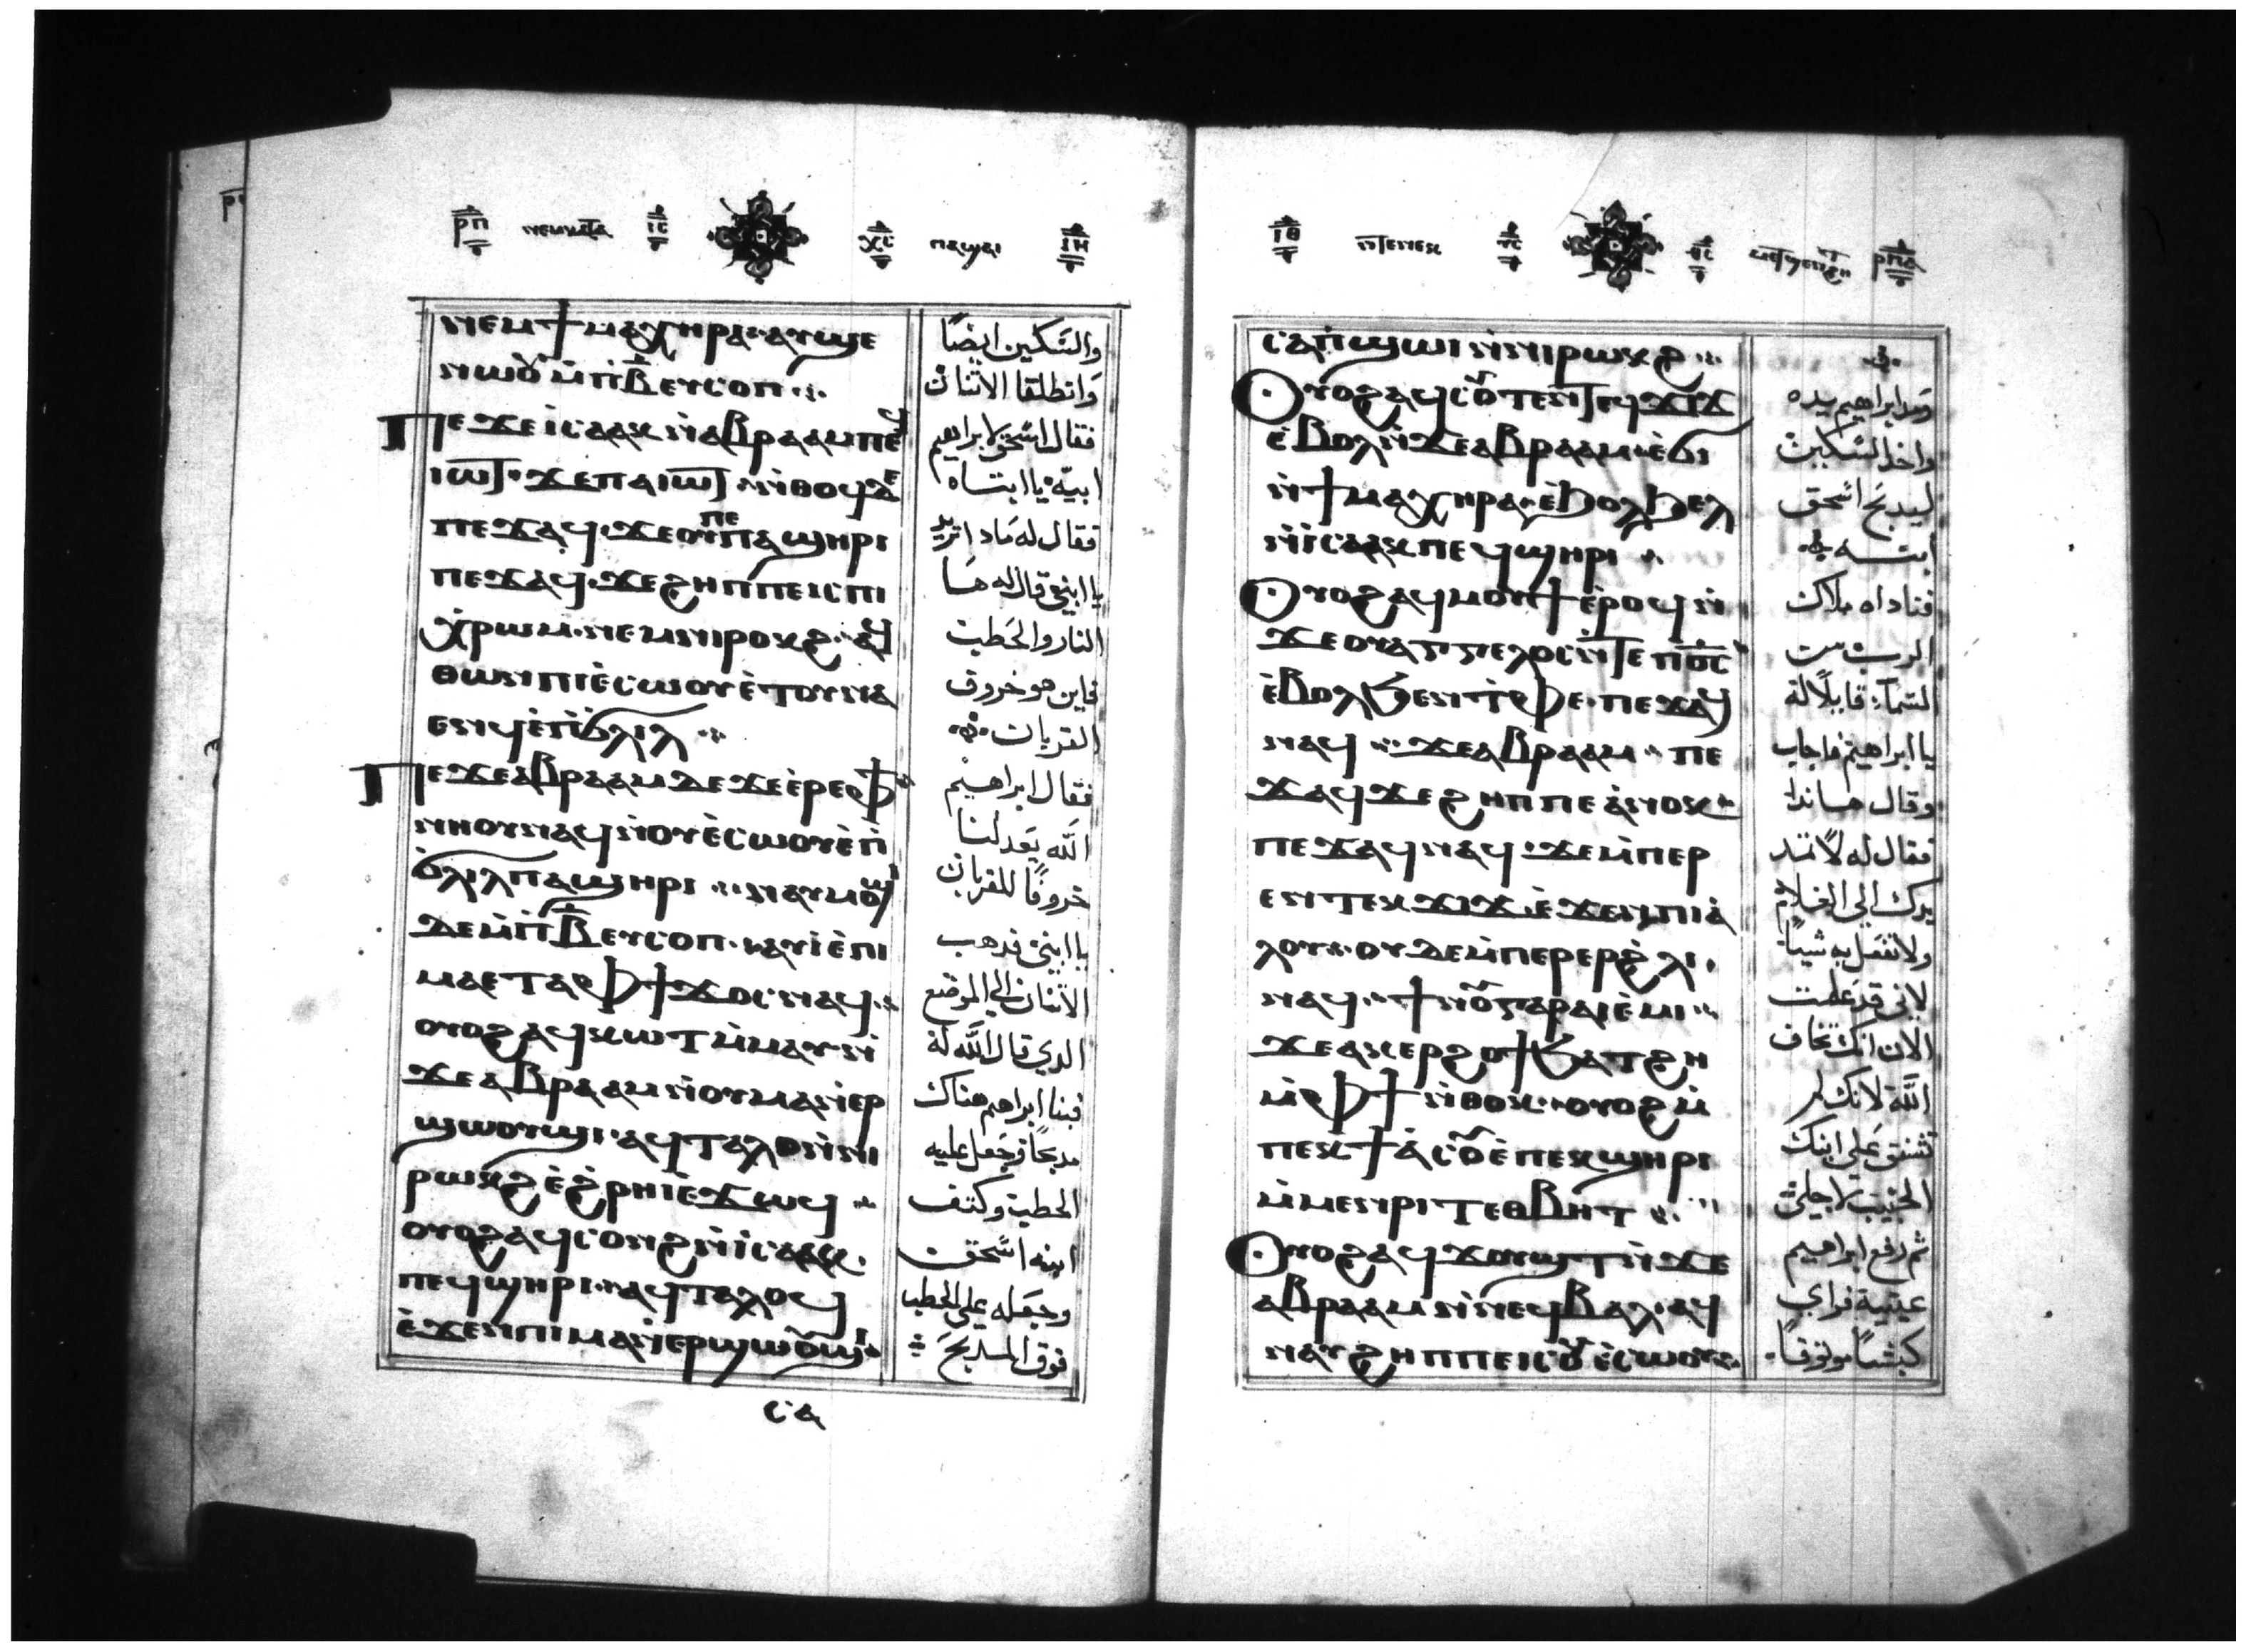 ⲣⲡ ⲓⲥ ⲭⲥ ⲓⲏ
ⲛⲉⲙϯⲙⲁⲭⲏⲣⲁ ⲁⲩϣⲉ
ⲛⲱⲟⲩ ⲙⲡⲃ ⲉⲩⲥⲟⲡ
ⲡⲉϫⲉ ⲓⲥⲁⲁⲕ ⲛⲁⲃⲣⲁⲁⲙ ⲡⲉϥ
ⲓⲱⲧ ϫⲉ ⲡⲁⲓⲱⲧ ⲛⲑⲟϥ ⲇⲉ
ⲡⲉϫⲁϥ ϫⲉ ⲟⲩ ⲡⲉ ⲡⲁϣⲏⲣⲓ
ⲡⲉϫⲁϥ ϫⲉ ϩⲏⲡⲡⲉ ⲓⲥ ⲡⲓ
ⲭⲣⲱⲙ ⲛⲉⲙ ⲛⲓⲣⲟⲕϩ ⲁϥ
ⲑⲱⲛ ⲡⲓⲉⲥⲱⲟⲩ ⲉⲧⲟⲩⲛⲁ
ⲉⲛϥ ⲉⲡϭⲗⲓⲗ
ⲡⲉϫⲉ ⲁⲃⲣⲁⲁⲙ ⲇⲉ ϫⲉ ⲉⲣⲉ ⲫϯ
ⲛⲏⲟⲩ ⲛⲁϥ ⲛⲟⲩⲉⲥⲱⲟⲩ ⲉⲡ
ϭⲗⲓⲗ ⲡⲁϣⲏⲣⲓ ⲛⲁⲩⲙⲟϣⲓ
ⲇⲉ ⲙⲡⲃ ⲉⲩⲥⲟⲡ ⲁⲩⲓ ⲉⲡⲓ
ⲙⲁ ⲉⲧⲁ ⲫϯ ϫⲟⲥ ⲛⲁϥ
ⲟⲩⲟϩ ⲁϥⲕⲱⲧ ⲙⲙⲁⲩ ⲛ
ϫⲉ ⲁⲃⲣⲁⲁⲙ ⲛⲟⲩⲙⲁⲛⲉⲣ
ϣⲱⲟⲩϣⲓ ⲁϥⲧⲁⲗⲟ ⲛⲛⲓ
ⲣⲱⲕϩ ⲉϩⲣⲏⲓ ⲉϫⲱϥ
ⲟⲩⲟϩ ⲁϥⲥⲟⲛϩ ⲛⲓⲥⲁⲁⲕ
ⲡⲉϥϣⲏⲣⲓ ⲁϥⲧⲁⲗⲟϥ
ⲉϫⲉⲛ ⲡⲓⲙⲁⲛⲉⲣϣⲱⲟⲩϣⲓ
ⲥⲁ
والسكين ايضًا
وانطلقا الاثنان
فقال اسحق لابراهيم
ابيه يا ابتاه
فقال له ماذا تريد
يا ابني قال له ها
النار والحطب
فاين هو خروف
القربان
فقال ابراهيم
الله يعد لنا
خروفًا للقربان
يا ابني فذهب
الاثنان الي الموضع
الذي قال الله له
فبنا ابراهيم هناك
مدبحًا وجعل عليه
الحطب وكتف
ابنه اسحق
وجعله علي الحطب
فوق المدبح
ⲓⲑ ⲛⲧⲉⲛⲉⲕ ⲣⲡⲁ
ⲥⲁⲡϣⲱⲓ ⲛⲛⲓⲣⲱⲕϩ
ⲟⲩⲟϩ ⲁϥⲥⲟⲩⲧⲉⲛ ⲧⲉϥϫⲓϫ
ⲉⲃⲟⲗ ⲛϫⲉ ⲁⲃⲣⲁⲁⲙ ⲉϭⲓ
ⲛϯⲙⲁⲭⲏⲣⲁ ⲉϧⲟⲗϧⲉⲗ
ⲛⲓⲥⲁⲁⲕ ⲡⲉϥϣⲏⲣⲓ
ⲟⲩⲟϩ ⲁϥⲙⲟⲩϯ ⲉⲣⲟϥ ⲛ
ϫⲉ ⲟⲩⲁⲅⲅⲉⲗⲟⲥ ⲛⲧⲉ ⲡⲟⲥ
ⲉⲃⲟⲗ ϧⲉⲛ ⲧⲫⲉ ⲡⲉϫⲁϥ
ⲛⲁϥ ϫⲉ ⲁⲃⲣⲁⲁⲙ ⲡⲉ
ϫⲁϥ ϫⲉ ϩⲏⲡⲡⲉ ⲁⲛⲟⲕ
ⲡⲉϫⲁϥ ⲛⲁϥ ϫⲉ ⲙⲡⲉⲣ
ⲉⲛ ⲧⲉⲕϫⲓϫ ⲉϫⲉⲛ ⲡⲓⲁ
ⲗⲟⲩ ⲟⲩⲇⲉ ⲙⲡⲉⲣⲉⲣ ϩⲗⲓ
ⲛⲁϥ ϯⲛⲟⲩ ⲅⲁⲣ ⲁⲓⲉⲙⲓ
ϫⲉ ⲁⲕⲉⲣϩⲟϯ ϧⲁⲧϩⲏ
ⲙⲫϯ ⲛⲑⲟⲕ ⲟⲩⲟϩ ⲙ
ⲡⲉⲕϯⲁⲥⲟ ⲉⲡⲉⲕϣⲏⲣⲓ
ⲙⲙⲉⲛⲣⲓⲧ ⲉⲑⲃⲏⲧ
ⲟⲩⲟϩ ⲁϥϫⲟⲩϣⲧ ⲛϫⲉ
ⲁⲃⲣⲁⲁⲙ ⲛⲛⲉϥⲃⲁⲗ ⲁϥ
ⲛⲁⲩ ϩⲏⲡⲡⲉ ⲓⲥ ⲟⲩⲉⲥⲱⲟⲩ
ومد ابراهيم يده
واخذ السكين
ليدبح اسحق
ابنه
فناداه ملاك
الرب من
السماء قايلًا له
يا ابراهيم فاجاب
وقال هانذا
فقال له لا تمد
يدك الي الغلام
ولا تفعل به شيًا
لاني قد علمت
الان انك تخاف
الله لانك لم
تشفق علي ابنك
الحبيب لاجلي
ثم رفع ابراهيم
عينيه فراي
كبشًا موثوقًا